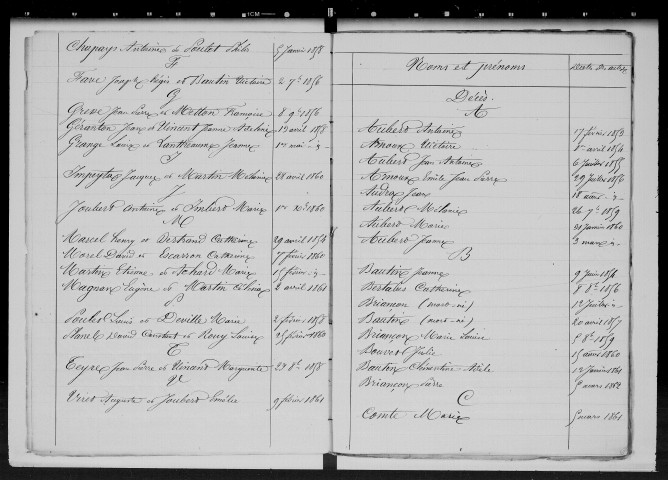 Chapuys Antoine et Poulet Julie 5 Janvier 1858
F
Favre Joseph Régis et Bautin Victoire 2 7e 1856
G
Greve Jean Pierre et Metton Françoise 8 9e 1856
Géranton Jean et Vincent Jeanne 12 avril 1858
Grange Louis et Jeanne 1er mai -
I
Impeytas Jacques et Martin Mélanie 28 avril 1860
J
Joubert Antoine et Imbert Marie 1er 1860
M
Marcel Rémy et Bertrand Catherine 29 avril 1854
Morel David et Escarron Catherine 7 février 1860
Martin Etienne et Achard Marie 15 février -
Magnan Eugène et Martin Célina 2 avril 1861
P
Poulet Louis et Deville Marie 2 février 1858
Planel David Constant et Roux Louise 25 février 1860
T
Teyre Jean Pierre et Vincent Marguerite 27 8e 1858
V
Viret Auguste et Joubert Emilie 9 février 1861
Noms et prénoms Date des actes
Décès
A
Aubert Antoine 17 février 1853
Arnoux Victoire 8 avril 1854
Aubert Jean Antoine 6 Juillet 1855
Arnoux Emile Jean Pierre 29 Juillet 1856
Audra Jean 18 -
Aubert Mélanie 26 7e 1859
Aubert Marie 31 Janvier 1860
Aubert Jeanne 3 mars -
B
Bautin Jeanne 9 Juin 1854
Bertalus Catherine 8 8e 1856
Briançon (mort-né) 12 Juillet -
Bautin (mort-né) 20 avril 1857
Briançon Marie Louise 5 8e 1859
Bouvet Julie 15 1860
Bautin Clémentine Adèle 12 Janvier 1861
Briançon Pierre 5 mars 1862
C
Comte Marie 5 mars 1861